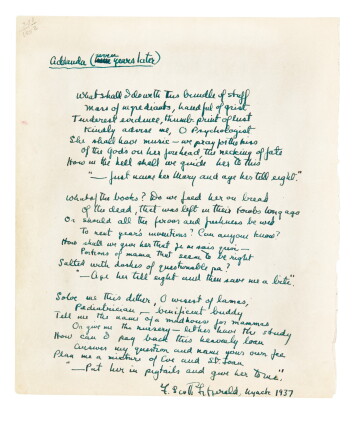 Addenda (seven years later)
What shall I do with this bundle of stuff
Mass of ingredients, handful of grist
Tenderest evidence, thumb-print of lust
Kindly advise me, O Psychologist
She shall have music – we pray for the kiss
of the Gods on her forehead, the necking of fate
How in the hell shall we guide her to this
"– Just name her Mary and age her till eight."
What of the books? Do we feed her on bread
of the dead, that was left in their tombs long ago
Or should all the fervor and freshness be wed
To next year's inventions? Can anyone know?
How shall we give her that je ne sais quoi –
Portions of mama that seem to be right
Salted with dashes of questionable pa?
"– Age her till eight and then save me a bite."
Solve me this dither, O wisest of lamas,
Pediatrician – beneficent buddy
Tell me the name of a madhouse for mammas
Or give me the nursery – let her have the study
How can I pay back this heavenly loan
Answer my question and name your own fee
Plan me a mixture of Eve and St. Joan
"– Put her in pigtails and give her to me."
F. Scott Fitzgerald, Nyack 1937